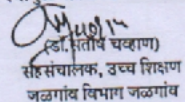 (डॉ.सतिष चव्हाण)
सहसंचालक, उच्च शिक्षण
जळगांव विभाग जळगांव